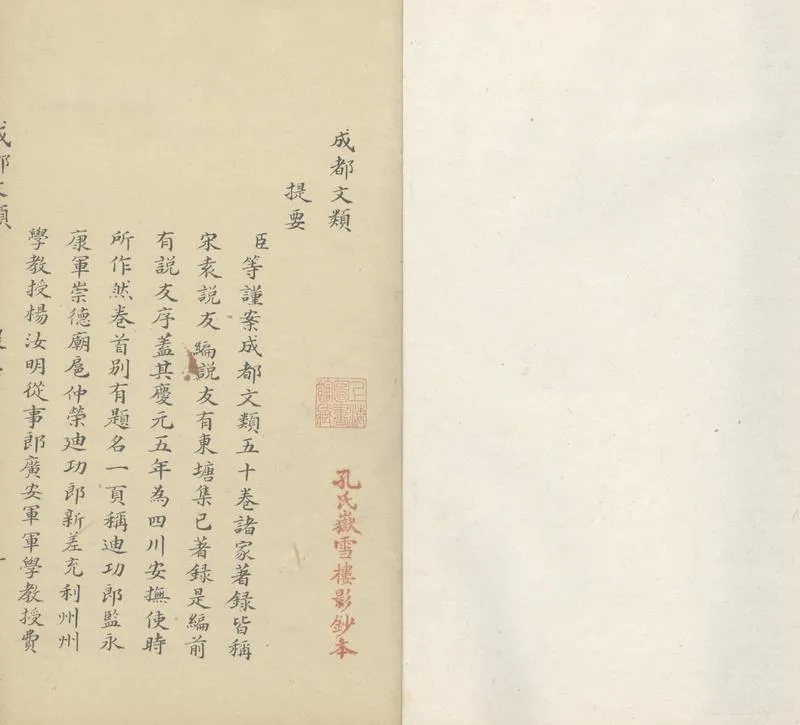 成都文類
提要
臣等謹案成都文類五十卷諸家著録皆稱
宋袁説友編説友有東塘集已著録是編前
有説友序蓋其慶元五年為四川安撫使時
所作然卷首别有題名一頁稱迪功郎監永
康軍崇德廟扈仲榮迪功郎新差充利州州
學教授楊汝明從事郎廣安軍軍學教授費
成都文類
孔氏嶽雪樓影鈔本
上海圖書館藏